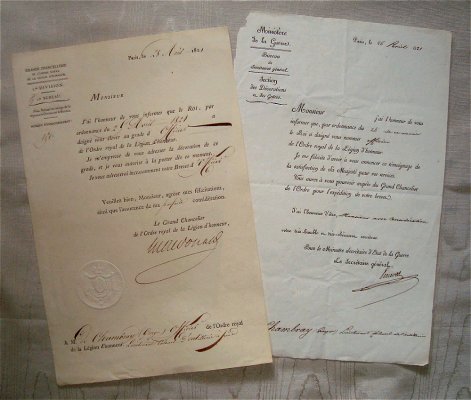 GRANDE CHANCELLERIE
DE L'ORDRE ROYAL
DE LA LÉGION D'HONNEUR.
DIVISION.
BUREAU.
Paris, le 1821
Monsieur
J'ai l'honneur de vous informer que le Roi, par
ordonnance du 1821 a
daigné vous élever au grade d'Officier
de l'Ordre royal de la Légion d'honneur.
Je m'empresse de vous adresser la décoration de ce
grade, et je vous autorise à la porter dès ce moment.
Je vous adresserai incessamment votre Brevet d'Officier
Veuillez bien, Monsieur, agréer mes félicitations,
ainsi que l'assurance de ma considération.
Le Grand Chancelier
de l'Ordre royal de la Légion d'honneur,
Macdonald
A M. de Chambray Officier de l'Ordre royal
de la Légion d'honneur, Lieutenant Colonel d'artillerie
Ministère
de la Guerre.
Bureau
du Secrétariat général.
Section
des Décorations
et des Grâces.
Paris, le 1821
Monsieur j'ai l'honneur de vous
informer que, par ordonnance du
le Roi a daigné vous nommer officier
de l'Ordre royal de la Légion d'honneur.
Je me félicite d'avoir à vous annoncer ce témoignage de
la satisfaction de Sa Majesté pour vos services.
de l'Ordre pour l'expédition de votre brevet.
J'ai l'honneur d'être, Monsieur avec considération
votre très humble et très obéissant serviteur
Pour le Ministre Secrétaire d'Etat de la Guerre
Le Secrétaire général,
Chambray Lieutenant Colonel d'artillerie